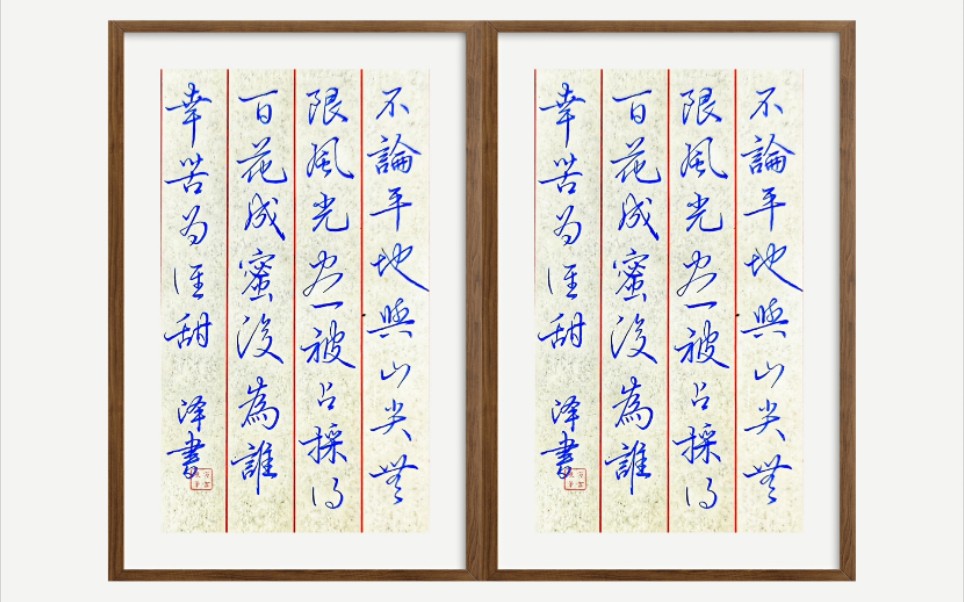 不論平地與山尖無
限風光盡被占採得
百花成蜜後為誰
辛苦为谁甜 泽書
不論平地與山尖無
限風光盡被占採得
百花成蜜後為誰
辛苦为谁甜 泽書